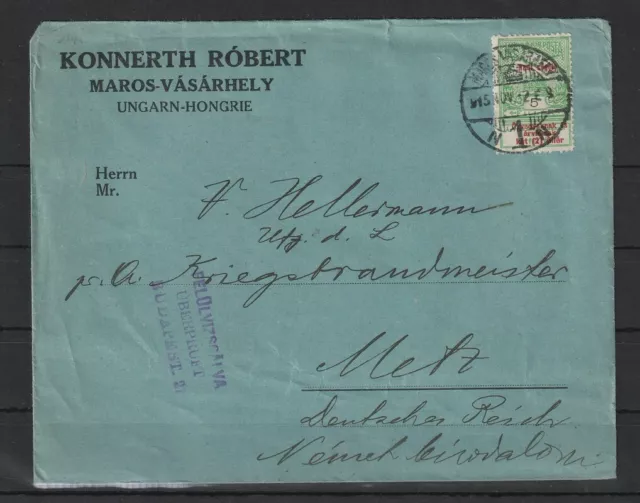 KONNERTH RÓBERT
MAROS-VÁSÁRHELY
UNGARN-HONGRIE
Herrn
Mr.
V. Hellermann
Utz. d. L
p. A. Kriegsbrandmeister
Metz
Deutsches Reich
Német birodalom
FELÜLVIZSGÁLVA
ÜBERPRÜFT
BUDAPEST.
915 NOV
5